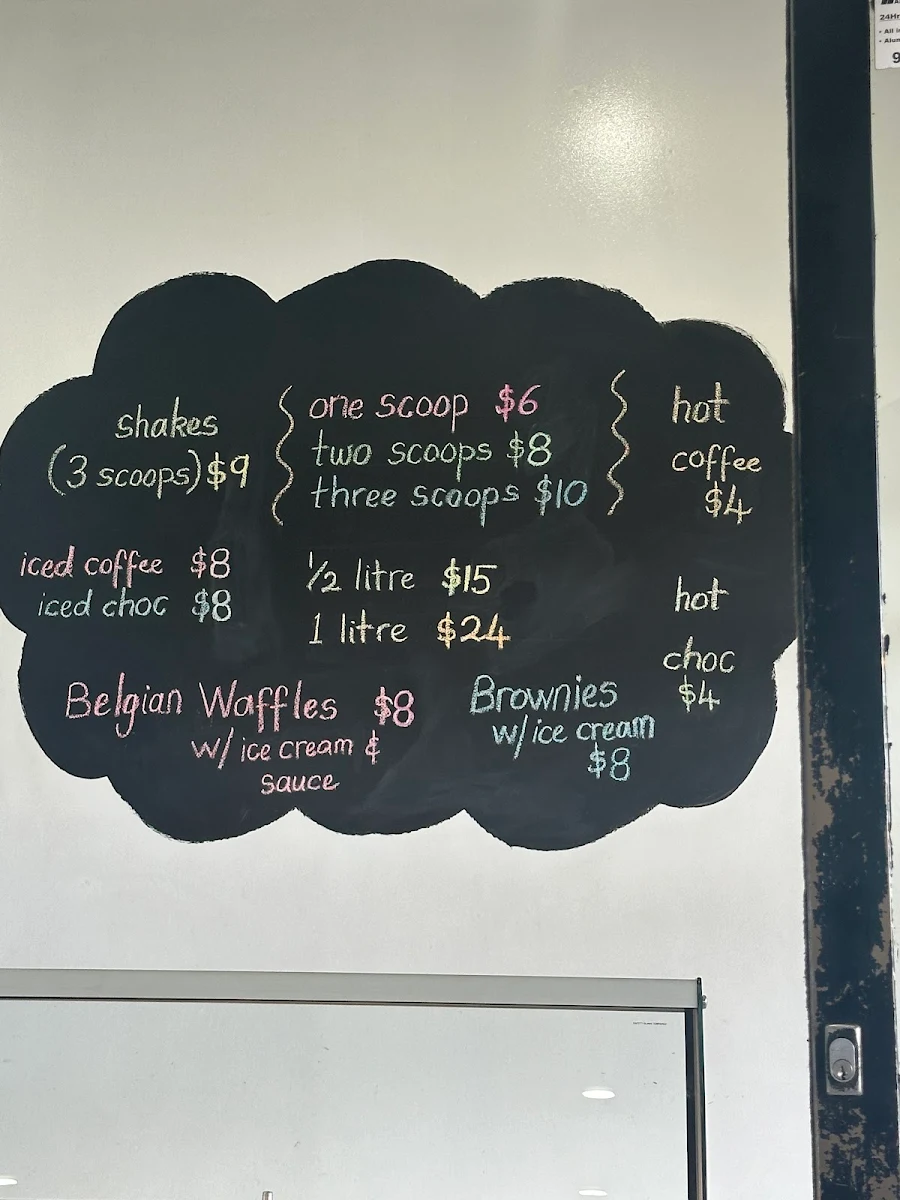 shakes
(3 scoops) $9
one scoop $6
two scoops $8
three scoops $10
hot
coffee
$4
iced coffee $8
iced choc $8
1/2 litre $15
1 litre $24
hot
choc
$4
Belgian Waffles $8
w/ ice cream &
sauce
Brownies
w/ ice cream
$8
24Hr